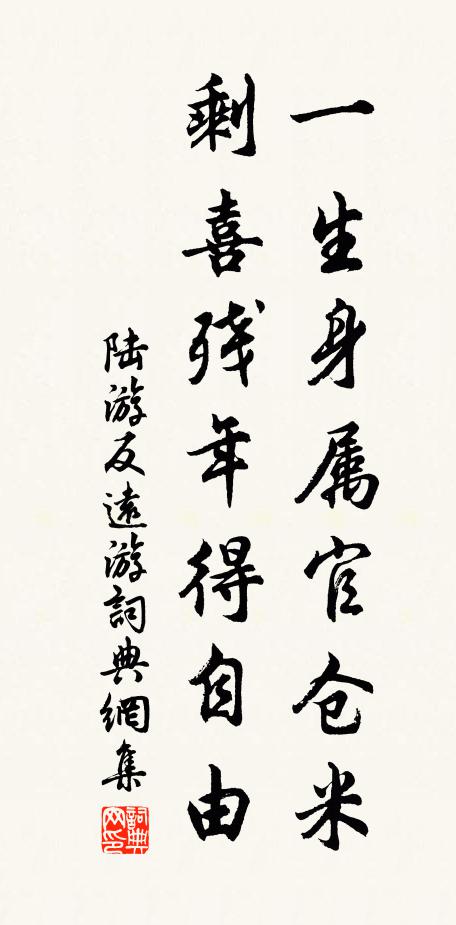 一生身属官仓米
剩喜残年得自由
陆游反遠游詞典網集
詞典
网印